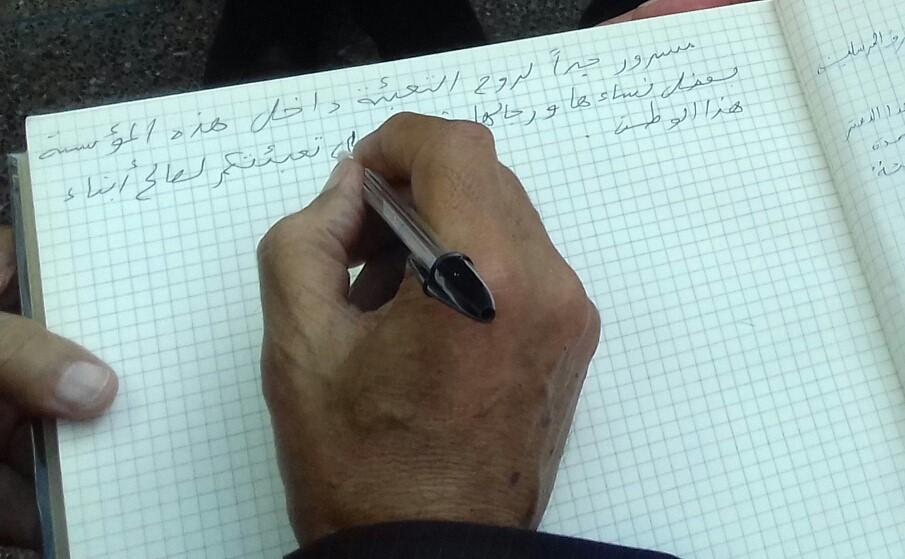 مسرور جداً لروح التعبئة داخل هذه المؤسسة
بفضل نساءها ورجالها تعبئتكم لصالح أبناء
هذا الوطن .
هذا الدفتر